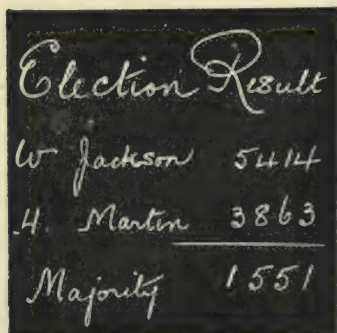 Election Result
W Jackson 5414
H. Martin 3863
Majority 1551